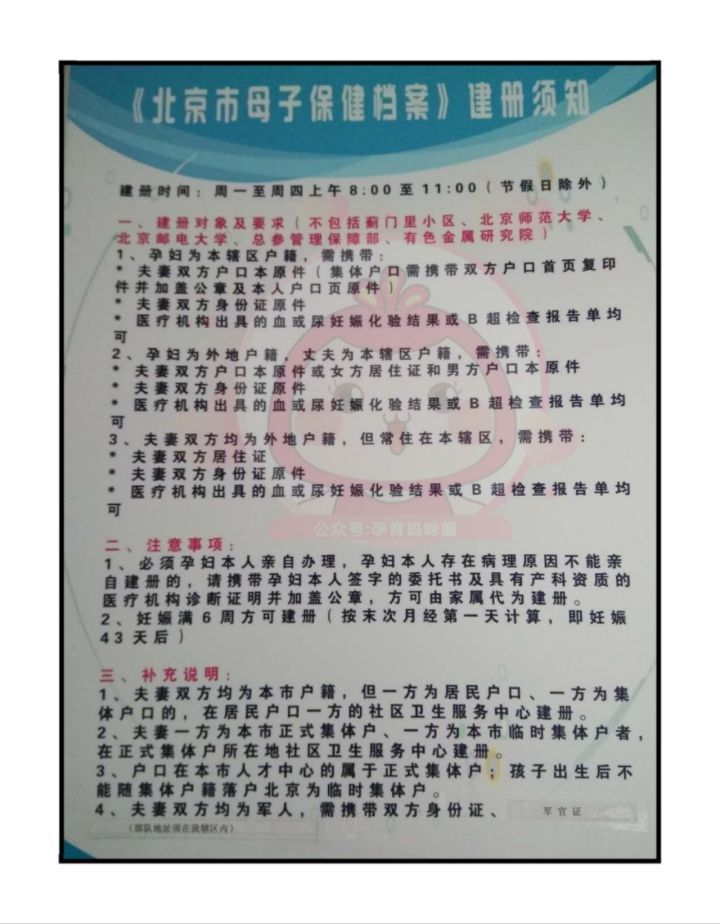 《北京市母子保健档案》建册须知
建册时间：周一至周四上午8:00至11:00（节假日除外）
一、建册对象及要求（不包括蓟门里小区、北京师范大学、
北京邮电大学、总参管理保障部、有色金属研究院）
1、孕妇为本辖区户籍，需携带：
* 夫妻双方户口本原件（集体户口需携带双方户口首页复印
件并加盖公章及本人户口页原件）
* 夫妻双方身份证原件
* 医疗机构出具的血或尿妊娠化验结果或B超检查报告单均
可
2、孕妇为外地户籍，丈夫为本辖区户籍，需携带：
* 夫妻双方户口本原件或女方居住证和男方户口本原件
* 夫妻双方身份证原件
* 医疗机构出具的血或尿妊娠化验结果或B超检查报告单均
可
3、夫妻双方均为外地户籍，但常住在本辖区，需携带：
* 夫妻双方居住证
* 夫妻双方身份证原件
* 医疗机构出具的血或尿妊娠化验结果或B超检查报告单均
可
公众号:孕育妈咪圈
二、注意事项：
1、必须孕妇本人亲自办理，孕妇本人存在病理原因不能亲
自建册的，请携带孕妇本人签字的委托书及具有产科资质的
医疗机构诊断证明并加盖公章，方可由家属代为建册。
2、妊娠满6周方可建册（按末次月经第一天计算，即妊娠
43天后）
三、补充说明：
1、夫妻双方均为本市户籍，但一方为居民户口、一方为集
体户口的，在居民户口一方的社区卫生服务中心建册。
2、夫妻一方为本市正式集体户、一方为本市临时集体户者，
在正式集体户所在地社区卫生服务中心建册。
3、户口在本市人才中心的属于正式集体户；孩子出生后不
能随集体户籍落户北京为临时集体户。
4、夫妻双方均为军人，需携带双方身份证、 军官证
（部队地址须在我辖区内）